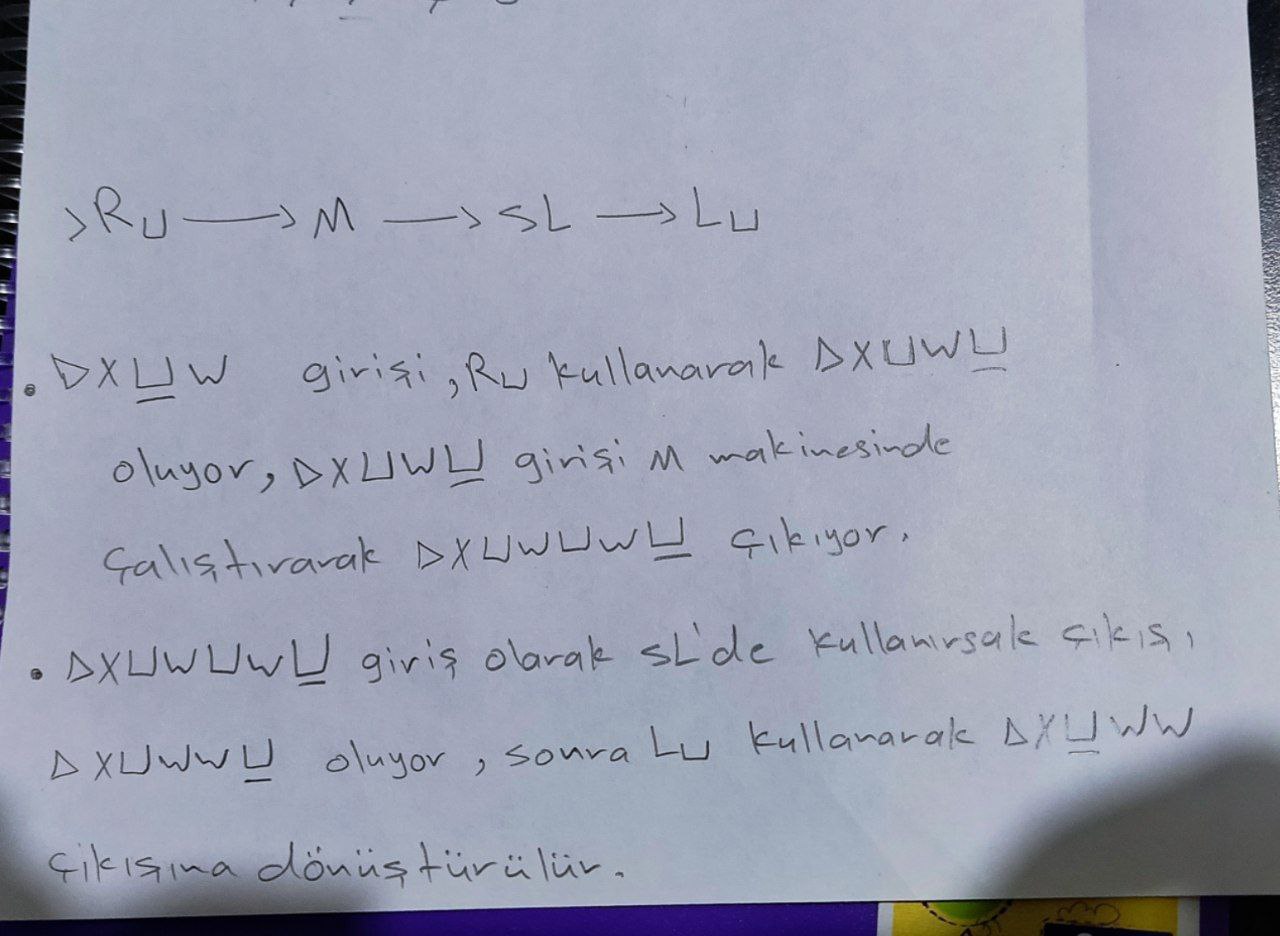 >R⊔ → M → SL → L⊔
• ▷X⊔̲W girişi, R⊔ kullanarak ▷X⊔W⊔̲
oluyor, ▷X⊔W⊔̲ girişi M makinesinde
Çalıştırarak ▷X⊔W⊔W⊔̲ çıkıyor.
• ▷X⊔W⊔W⊔̲ giriş olarak SL'de kullanırsak çıkış,
▷X⊔WW⊔̲ oluyor, sonra L⊔ kullanarak ▷X⊔̲WW
çıkışına dönüştürülür.